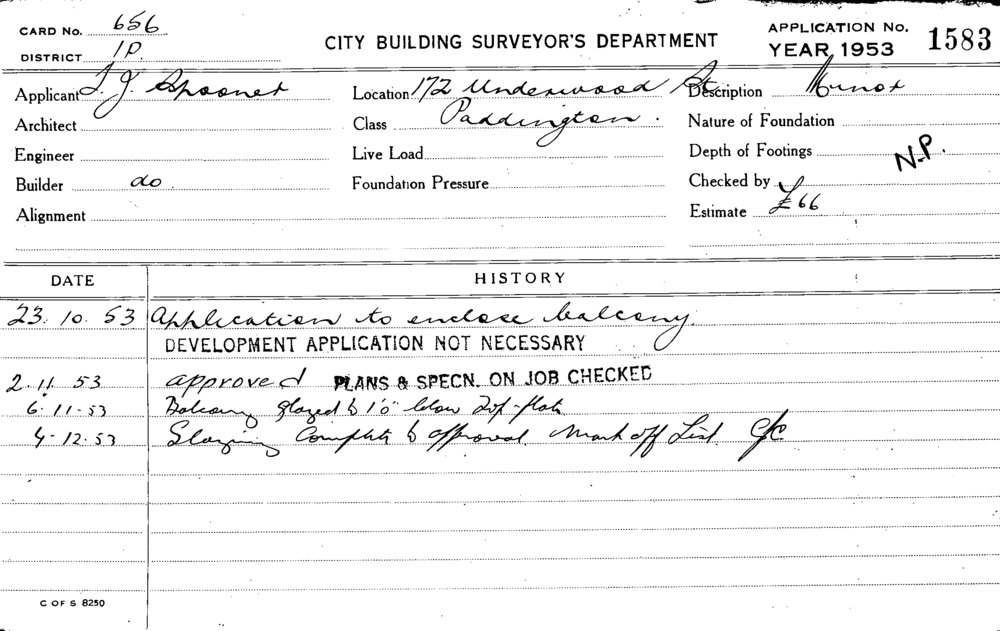 CARD No. 656
DISTRICT 1P.
CITY BUILDING SURVEYOR'S DEPARTMENT
APPLICATION No.
YEAR 1953 1583
Applicant J. Spooner Location 172 Underwood St Description Minor
Architect Class Paddington. Nature of Foundation
Engineer Live Load Depth of Footings N.P.
Builder do Foundation Pressure Checked by
Alignment Estimate £66
DATE HISTORY
23. 10. 53 Application to enclose balcony.
DEVELOPMENT APPLICATION NOT NECESSARY
2. 11. 53 approved PLANS & SPECN. ON JOB CHECKED
6. 11-53 Balcony glazed to 1'0" below
4-12.53 Glazing Complete to approval Mark off List
C OF S 8250